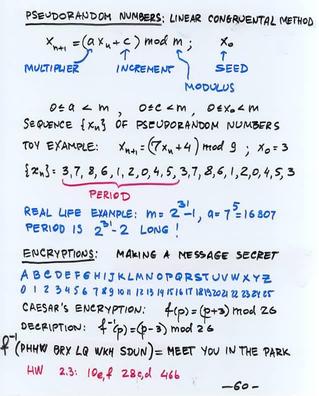 PSEUDORANDOM NUMBERS: LINEAR CONGRUENTAL METHOD
Xn+1 = (a Xn + c) mod m ; X0
MULTIPLIER INCREMENT SEED
MODULUS
0≤a < m , 0≤c<m , 0≤X0<m
SEQUENCE {Xn} OF PSEUDORANDOM NUMBERS
TOY EXAMPLE: Xn+1 = (7Xn + 4) mod 9 ; X0 = 3
{Xn} = 3,7,8,6,1,2,0,4,5,3,7,8,6,1,2,0,4,5,3
PERIOD
REAL LIFE EXAMPLE: m = 2^31 - 1, a = 7^5 = 16807
PERIOD IS 2^31 - 2 LONG !
ENCRYPTIONS: MAKING A MESSAGE SECRET
A B C D E F G H I J K L M N O P Q R S T U V W X Y Z
0 1 2 3 4 5 6 7 8 9 10 11 12 13 14 15 16 17 18 19 20 21 22 23 24 25
CAESAR'S ENCRYPTION: f(p) = (p+3) mod 26
DECRIPTION: f^-1(p) = (p-3) mod 26
f^-1 (PHHW BRX LQ WKH SDUN) = MEET YOU IN THE PARK
HW 2.3: 10e,f 28c,d 46b
-60-